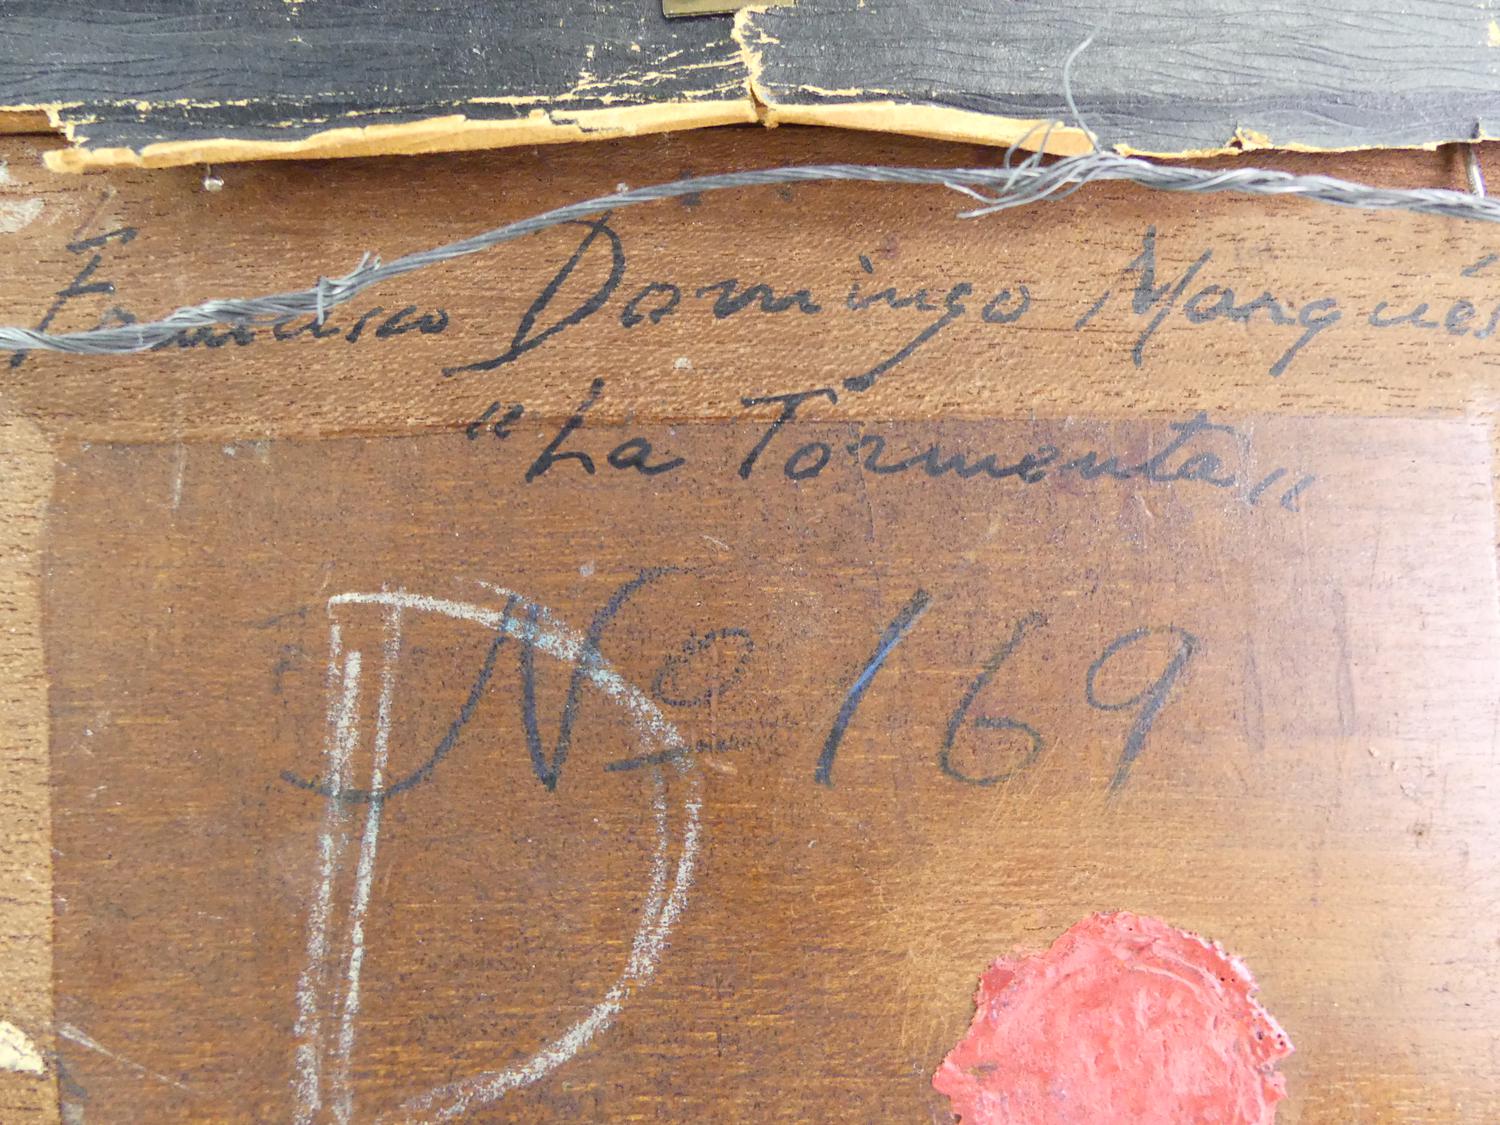 Francisco Domingo Marqués
"La Tormenta"
Nº 169
D